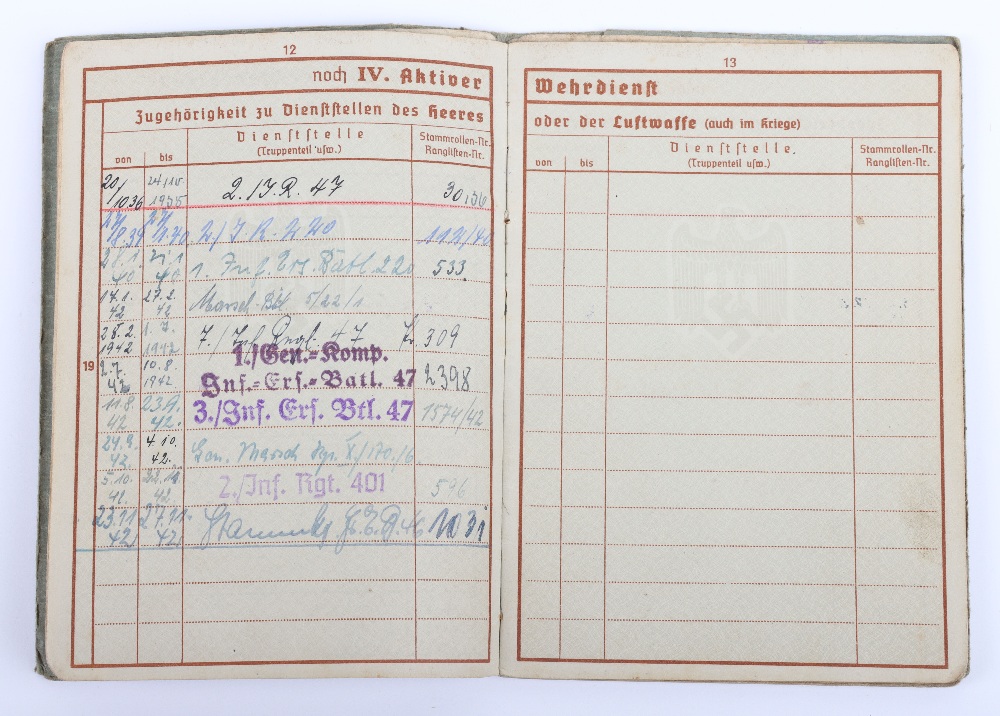 12
noch IV. Aktiver
Zugehörigkeit zu Dienststellen des Heeres
von bis Dienststelle (Truppenteil usw.) Stammrollen-Nr. Ranglisten-Nr.
20/10 36 1935 2./I.R. 47 30,36
27/1 40 2/I.R. 220 112/40
28.1. 40 21.1 40 1. Inf. Ers. Batl 220 533
14.1. 42 27.2. 42 Marsch 5/22/1
28.2. 1942 1.7. 1942 7./Inf. Regt. 47 309
19
2.7. 42 10.8. 1942 1./Gen.-Komp. Inf.-Ers.-Batl. 47 2398
11.8. 42 23.9. 42. 3./Inf. Ers. Btl. 47 1574/42
24.9. 42. 4.10. 42. Gen. Marsch X/170/6
5.10. 42. 22.11. 42. 2./Inf. Rgt. 401 596
23.11. 42 27.11. 42 1031
13
Wehrdienst
oder der Luftwaffe (auch im Kriege)
von bis Dienststelle. (Truppenteil usw.) Stammrollen-Nr. Ranglisten-Nr.